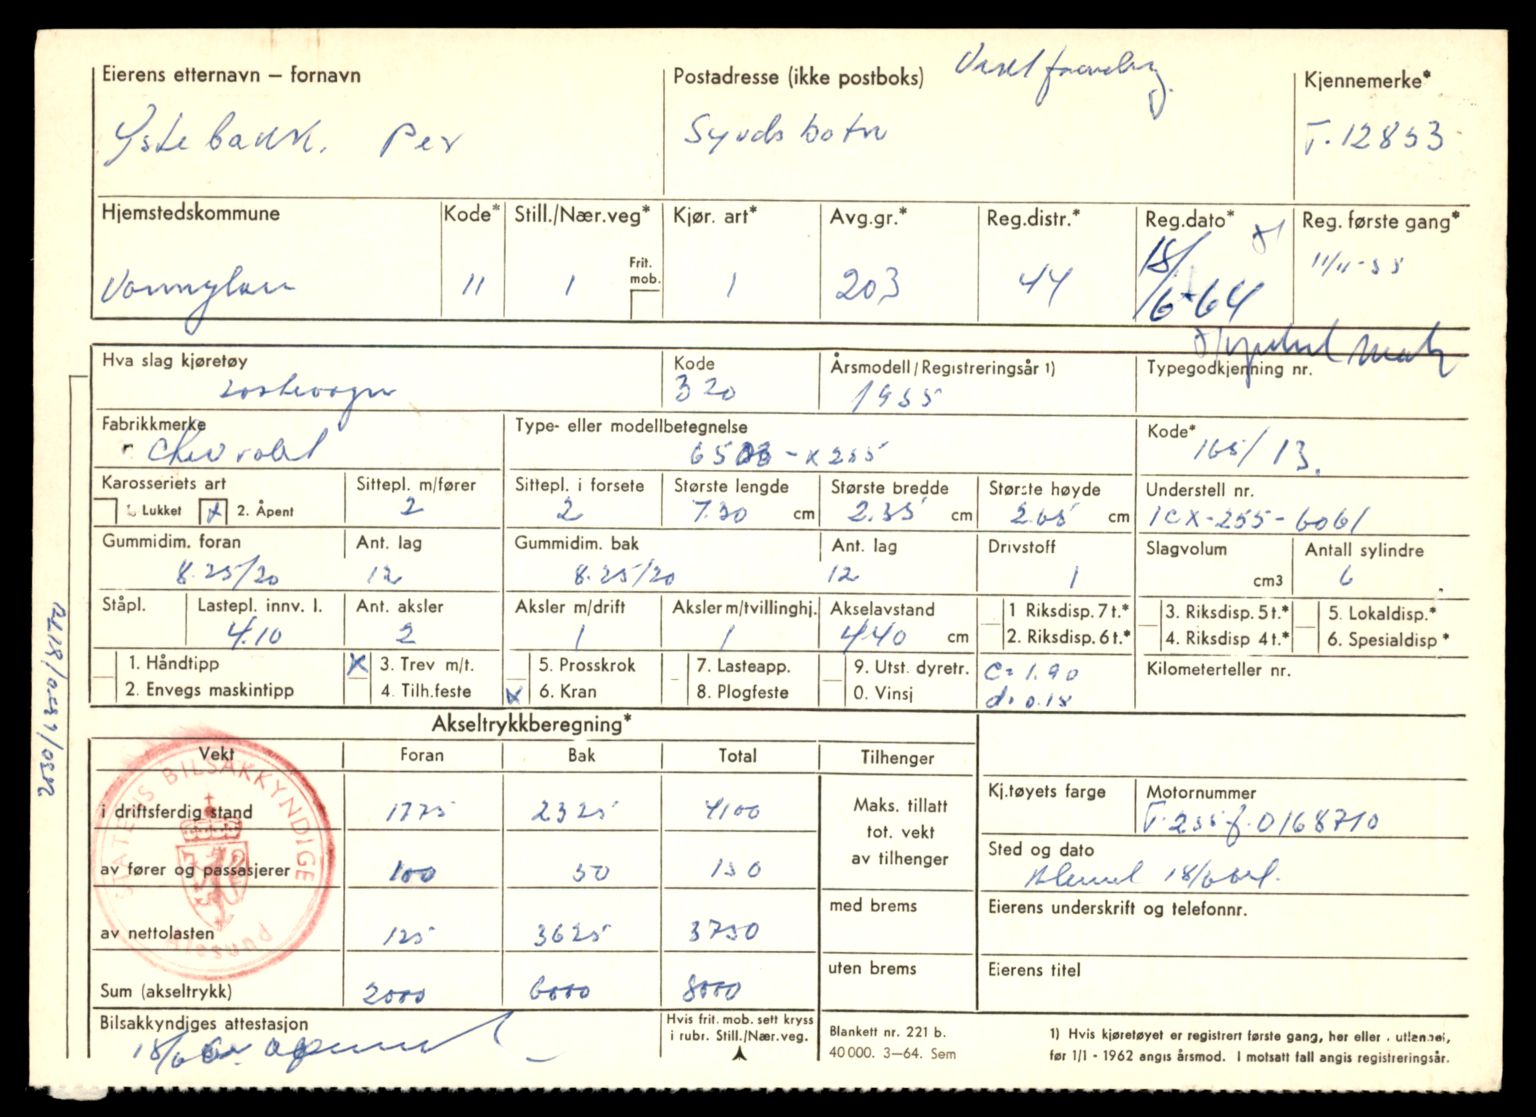 Eierens etternavn – fornavn
Postadresse (ikke postboks)
Kjennemerke*
Per
T. 12853
Hjemstedskommune
Kode*
Still./Nær.veg*
Kjør. art*
Avg.gr.*
Reg.distr.*
Reg.dato*
Reg. første gang*
Frit. mob.
11
1
1
203
44
18/6-64
11/11-55
Hva slag kjøretøy
Kode
Årsmodell/Registreringsår 1)
Typegodkjenning nr.
320
1955
Fabrikkmerke
Type- eller modellbetegnelse
Kode*
Chevrolet
165/13.
Karosseriets art
Sittepl. m/fører
Sittepl. i forsete
Største lengde
Største bredde
Største høyde
Understell nr.
1. Lukket
x 2. Åpent
2
2
7.30 cm
2.35 cm
2.65 cm
1CX-255-6061
Gummidim. foran
Ant. lag
Gummidim. bak
Ant. lag
Drivstoff
Slagvolum
Antall sylindre
8.25/20
12
8.25/20
12
1
cm3
6
Ståpl.
Lastepl. innv. l.
Ant. aksler
Aksler m/drift
Aksler m/tvillinghj.
Akselavstand
1 Riksdisp. 7 t.*
3. Riksdisp. 5 t.*
5. Lokaldisp.*
4.10
2
1
1
440 cm
2. Riksdisp. 6 t.*
4. Riksdisp 4 t.*
6. Spesialdisp *
1. Håndtipp
x 3. Trev m/t.
5. Prosskrok
7. Lasteapp.
9. Utst. dyretr.
C= 1.90
Kilometerteller nr.
2. Envegs maskintipp
4. Tilh.feste
x 6. Kran
8. Plogfeste
0. Vinsj
d. 0.18
Akseltrykkberegning*
Vekt
Foran
Bak
Total
Tilhenger
i driftsferdig stand
1775
2325
4100
Maks. tillatt
tot. vekt
av tilhenger
Kj.tøyets farge
Motornummer
T.255 f. 0168710
av fører og passasjerer
100
50
150
Sted og dato
av nettolasten
125
3625
3750
med brems
Eierens underskrift og telefonnr.
Sum (akseltrykk)
2000
6000
8000
uten brems
Eierens titel
STATENS BILSAKKYNDIGE
Ålesund
Bilsakkyndiges attestasjon
Hvis frit. mob. sett kryss
i rubr. Still./Nær.veg.
Blankett nr. 221 b.
40 000. 3–64. Sem
1) Hvis kjøretøyet er registrert første gang, her eller i utlandet,
før 1/1 - 1962 angis årsmod. I motsatt fall angis registreringsår.